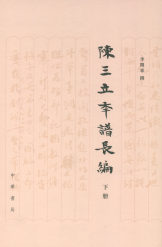 李開軍 撰
陳三立年譜長編
下冊
中華書局